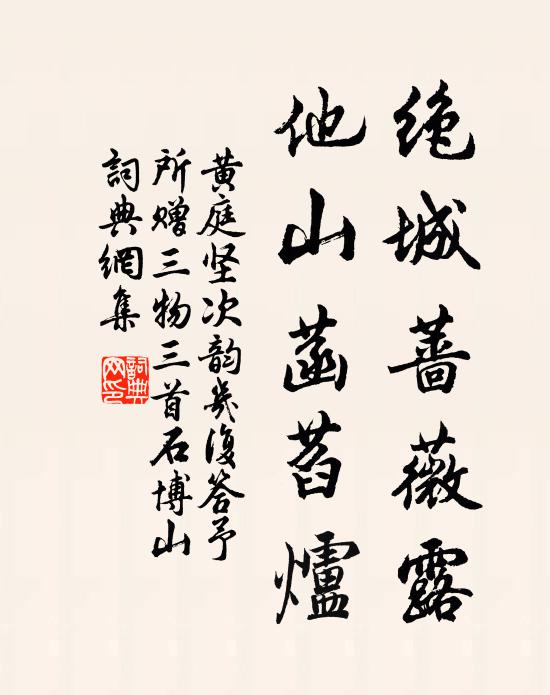 绝城薔薇露
他山菡萏爐
黄庭坚次韵幾復答予
所赠三物三首石博山
詞典網集
詞典网印